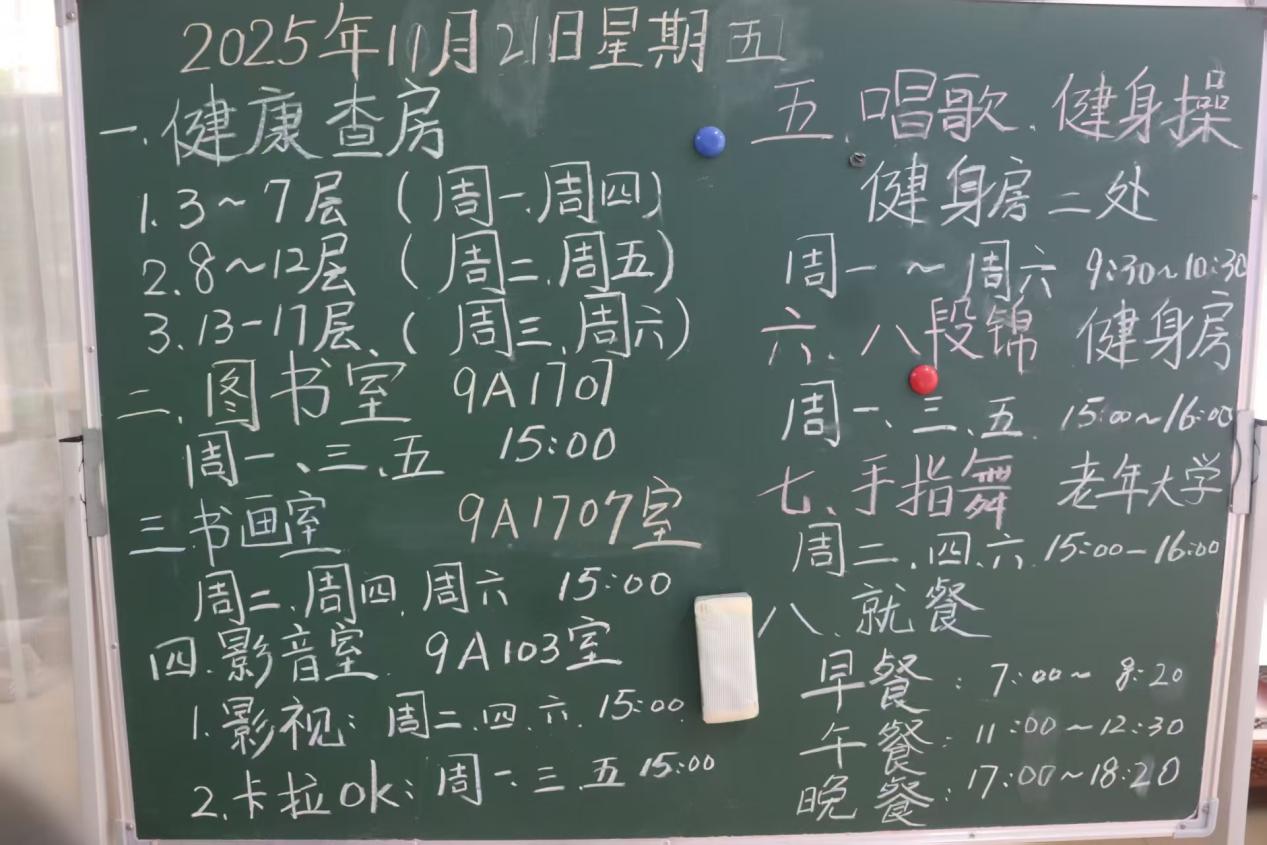 2025年11月21日星期五
一.健康查房
1.3~7层（周一、周四）
2.8~12层（周二、周五）
3.13-17层、（周三、周六）
二、图书室 9A1707
周一、三、五 15:00
三.书画室 9A1707室
周二、周四、周六 15:00
四.影音室 9A103室
1.影视：周二、四、六、15:00
2.卡拉ok：周一、三、五 15:00
五.唱歌、健身操
健身房二处
周一~周六 9:30~10:30
六、八段锦 健身房
周一、三、五 15:00~16:00
七、手指舞 老年大学
周二、四、六 15:00-16:00
八、就餐
早餐：7:00~8:20
午餐：11:00~12:30
晚餐：17:00~18:20